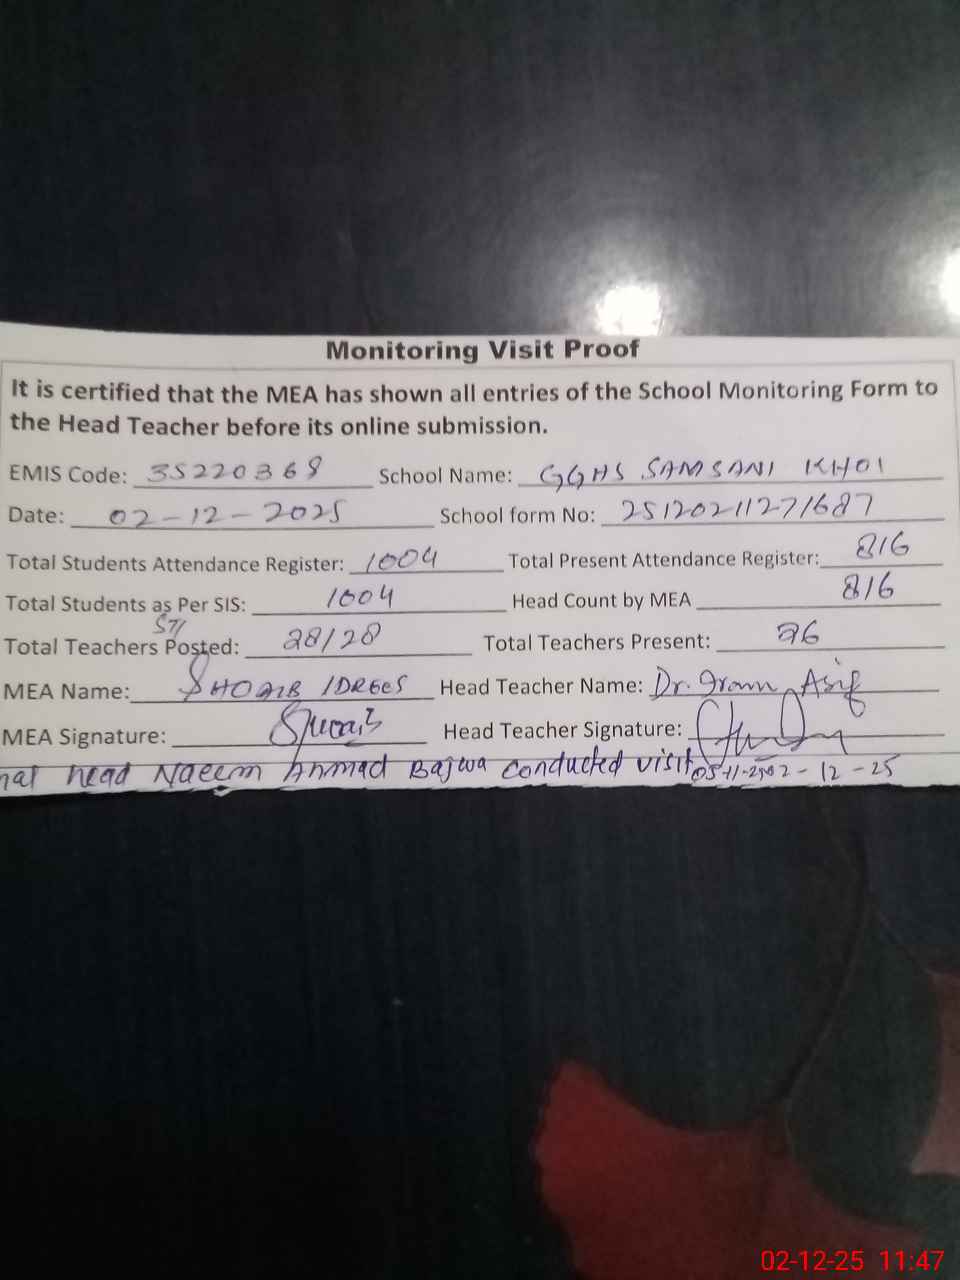 Monitoring Visit Proof
It is certified that the MEA has shown all entries of the School Monitoring Form to
the Head Teacher before its online submission.
EMIS Code: 35220368 School Name: GGHS SAMSANI KHOI
Date: 02-12-2025 School form No: 25120211271687
Total Students Attendance Register: 1004 Total Present Attendance Register: 816
Total Students as Per SIS: 1004 Head Count by MEA 816
STI
Total Teachers Posted: 28/28 Total Teachers Present: 26
MEA Name: SHOAIB IDREES Head Teacher Name: Dr. Iram Asif
MEA Signature: Shoaib Head Teacher Signature:
head Naeem Ahmad Bajwa conducted visit 02-12-25
02-12-25 11:47